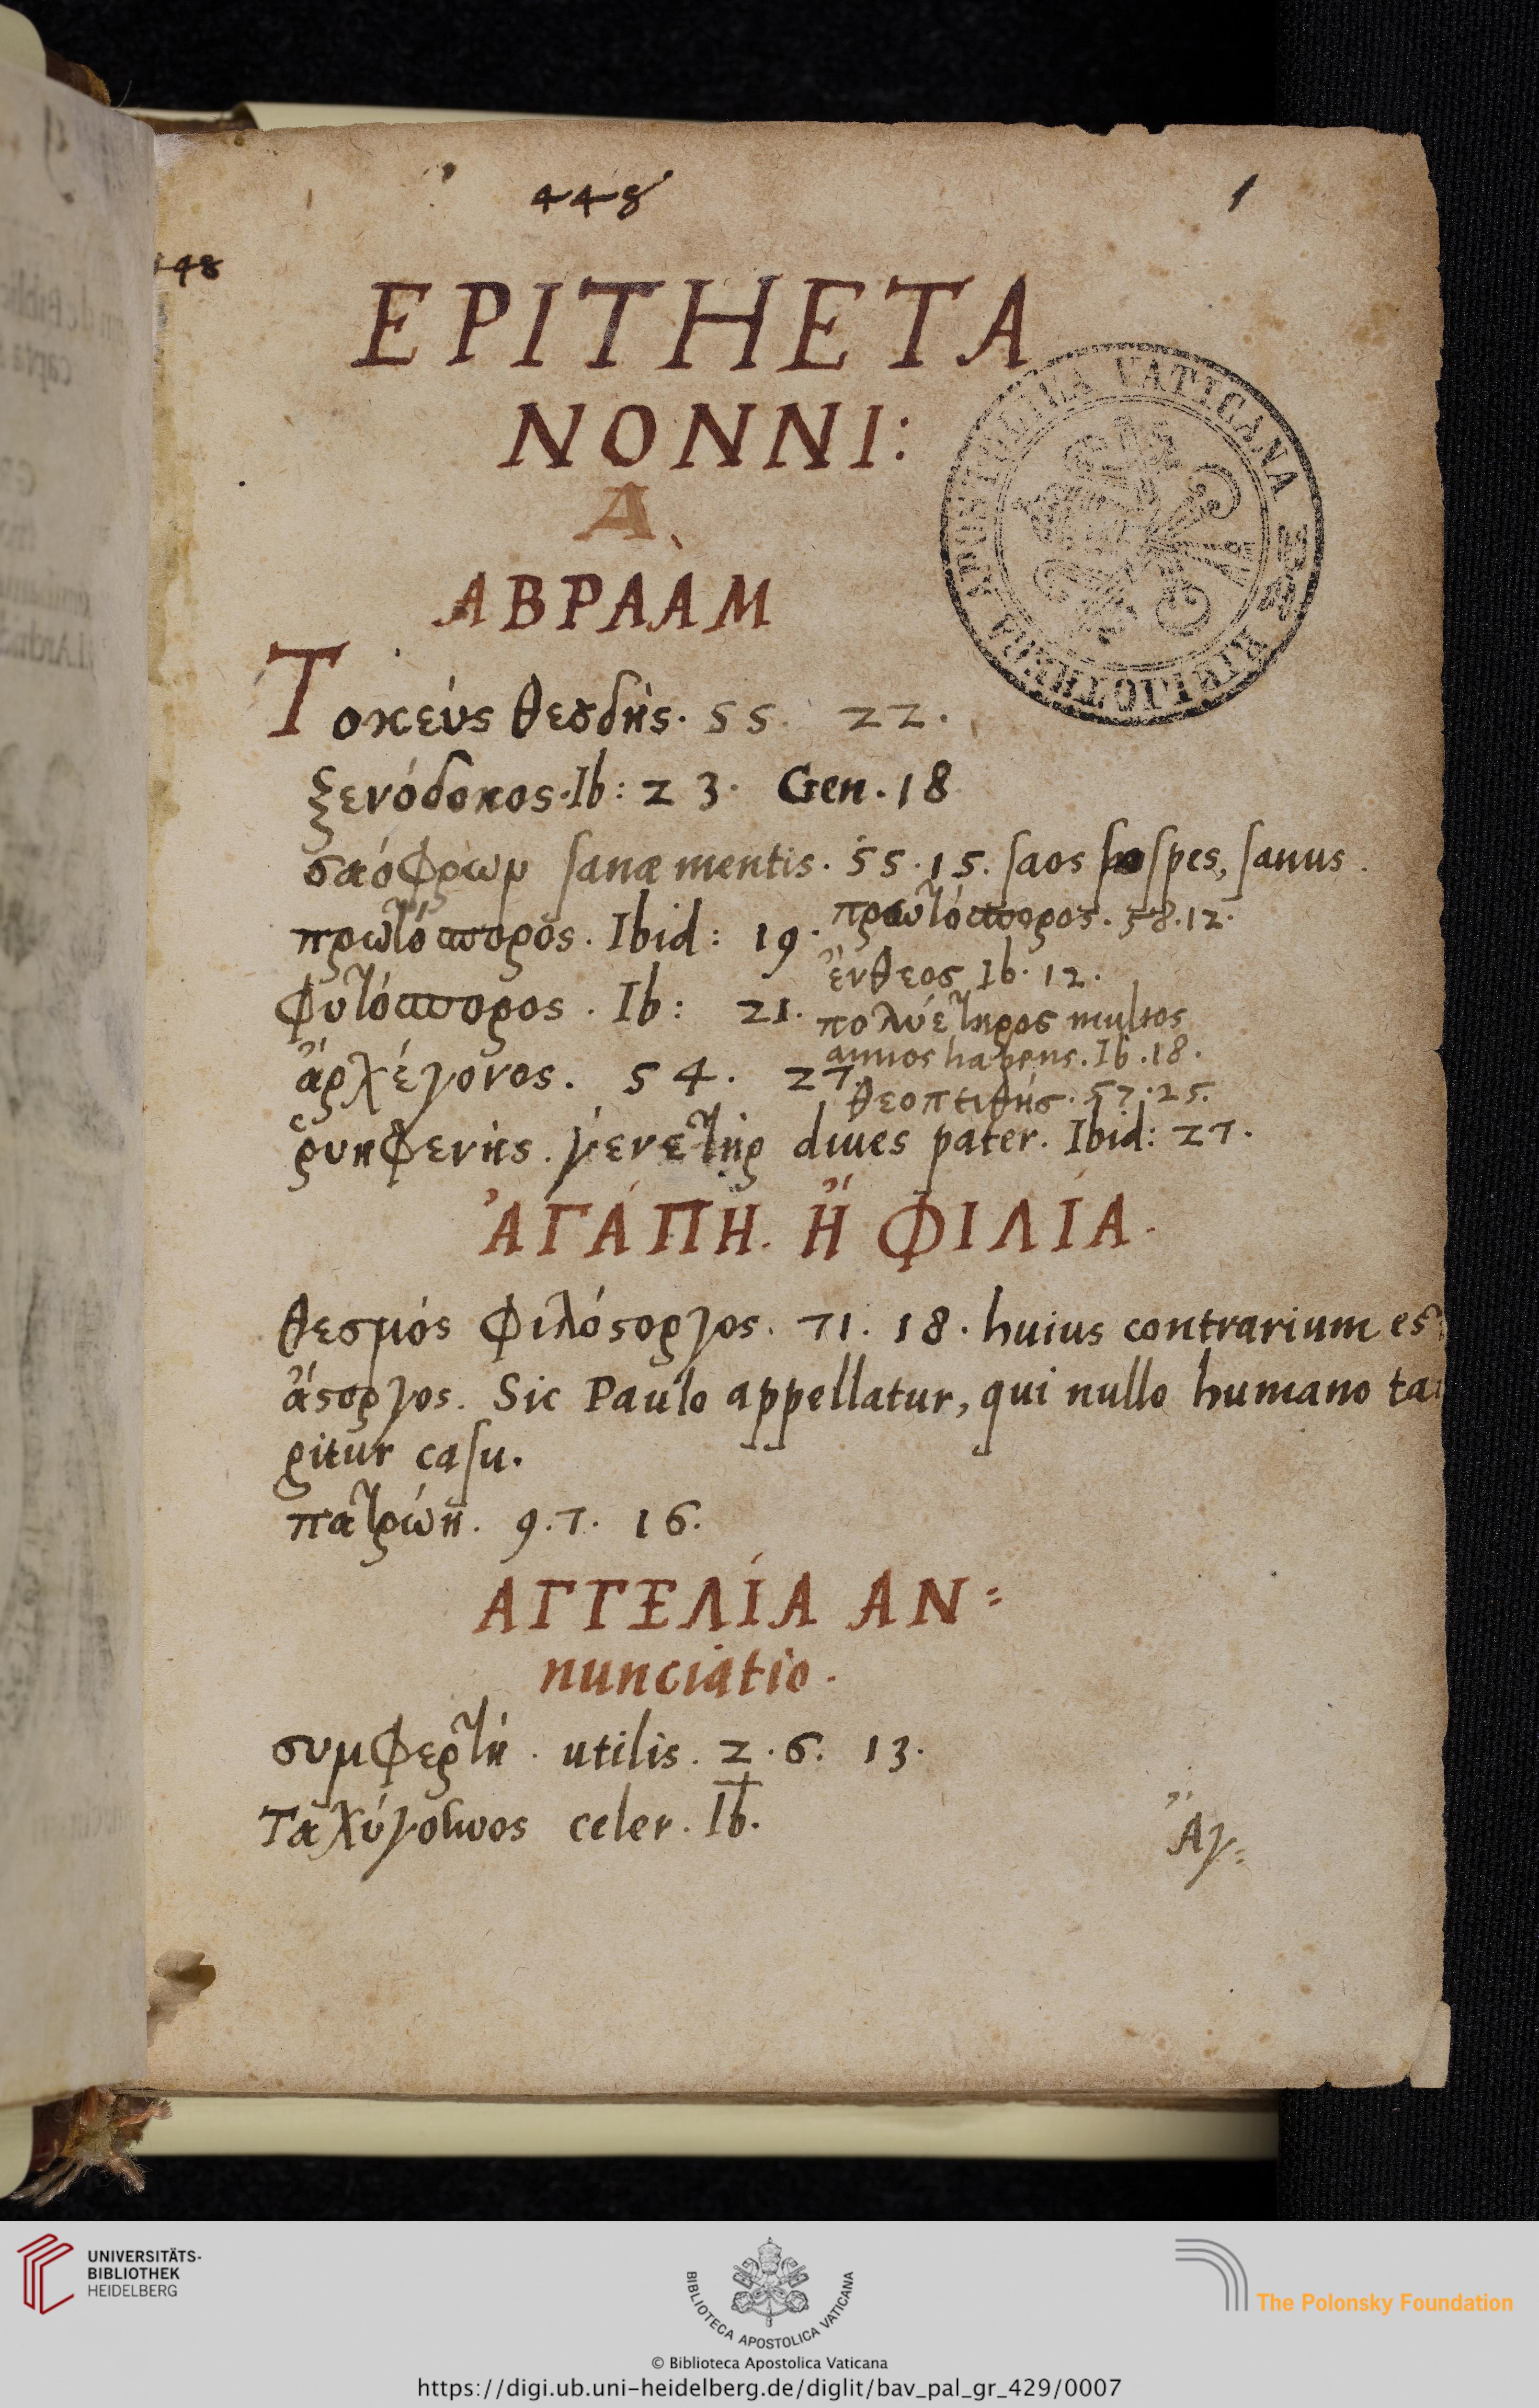 448
1
448
EPITHETA
NONNI:
A
ΑΒΡΑὰΜ
Τοκεύς θεουδής. 55. 22.
ξενόδοκος. Ib: 23. Gen. 18
σαόφρων sanæ mentis. 55. 15. saos sospes, sanus.
πρωτόσπορος. Ibid: 19.
πρωτόσπορος. 58. 12.
ἔνθεος Ib. 12.
φυτόσπορος. Ib: 21.
πολυέτηρος multos
annos habens. Ib. 18.
ἀρχέγονος. 54. 27.
θεοπειθής. 57. 25.
ῥυηφενής. γενετήρ diues pater. Ibid: 27.
ἈΓΆΠΗ. Ἢ ΦΙΛΊΑ.
θεσμός φιλόστοργος. 71. 18. huius contrarium est
ἄστοργος. Sic Paulo appellatur, qui nullo humano tan
gitur casu.
πατρώη. 9. 7. 16.
ΑΓΓΕΛΊΑ AN=
nunciatio.
συμφερτή. utilis. 2. 6. 13.
Ταχύγουνος celer. Ib.
Ἄγ=
BIBLIOTHECA APOSTOLICA VATICANA
UNIVERSITÄTS-
BIBLIOTHEK
HEIDELBERG
BIBLIOTECA APOSTOLICA VATICANA
The Polonsky Foundation
© Biblioteca Apostolica Vaticana
https://digi.ub.uni-heidelberg.de/diglit/bav_pal_gr_429/0007